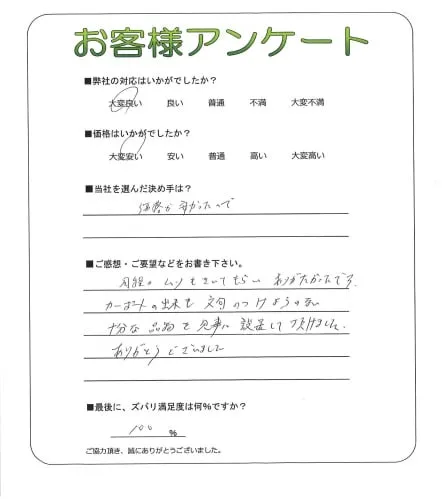 お客様アンケート
■弊社の対応はいかがでしたか？
大変良い 良い 普通 不満 大変不満
■価格はいかがでしたか？
大変安い 安い 普通 高い 大変高い
■当社を選んだ決め手は？
価格が安かったので
■ご感想・ご要望などをお書き下さい。
ムリもきいてもらい ありがたかったです。
カーポートの出来も 文句のつけようのない
十分な 品物を 見事に 設置して頂けました。
ありがとうございました
■最後に、ズバリ満足度は何％ですか？
100 ％
ご協力頂き、誠にありがとうございました。